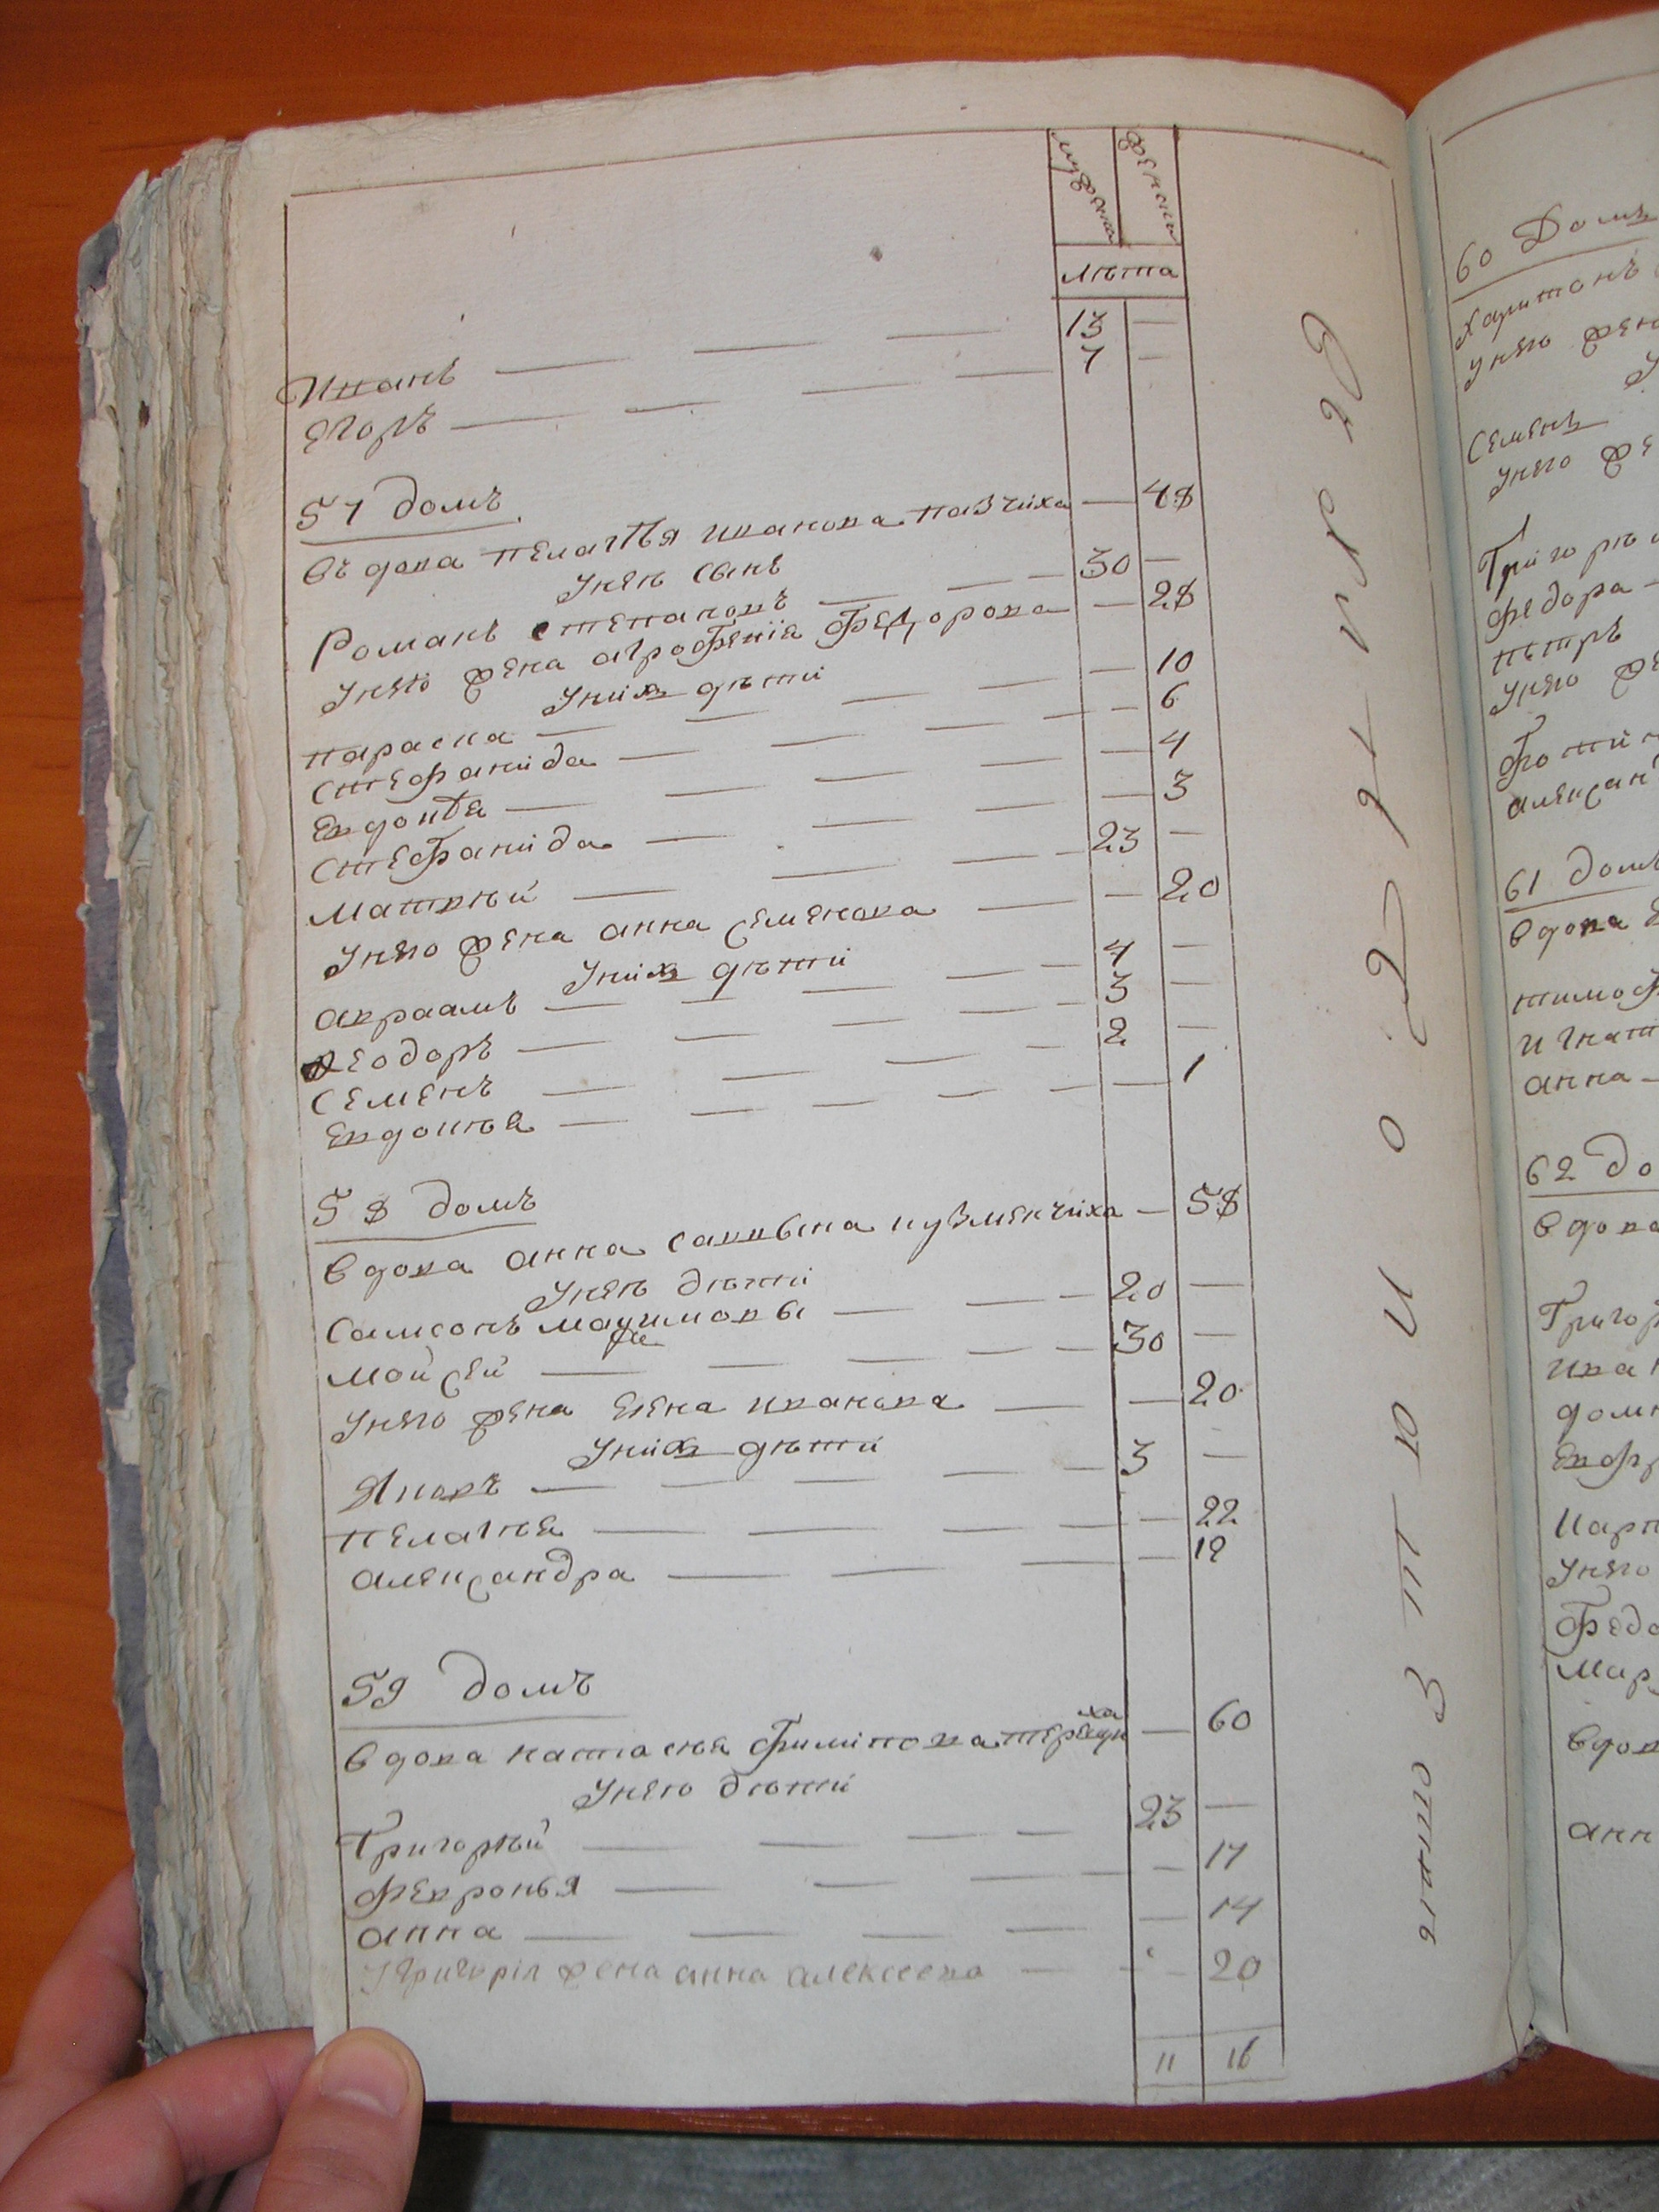 мужеска женска
лѣта
Иванъ — — — 13 —
Егоръ — — — — 7 —
57 домъ
въдова пелагѣя иванова пазчиха — 48
Унеи сынъ
Романъ степановъ — — — 30 —
Унего жена агрофенiя федорова — 28
Унихъ дѣти
параска — — — — — 10
стефанида — — — — — 6
Евдокѣя — — — — — 4
стефанида — — — — 3
матвѣй — — — — 23 —
Унего жена анна семенова — — 20
Унихъ дѣти
авраамъ — — — — 4 —
Феодоръ — — — — 3 —
семенъ — — — — 2 —
Евдокѣя — — — — — — 1
58 домъ
вдова анна саввына кузменчиха — 58
Унеи дѣти
самсонъ максимовы — — — 20 —
мойсей — — — — — 30 —
Унего жена елена иванова — — 20
Унихъ дѣти
Яковъ — — — — — 3 —
пелагѣя — — — — — 22
александра — — — — 12
59 домъ
вдова настасѣя филiпова — 60
Унею дѣти
Григорѣй — — — — 23 —
февронья — — — — — 17
анна — — — — — 14
У Григорiя жена анна алексеева — — — 20
11 16
60 Домъ
Харитонъ
Унего жена
Семенъ
Унего же
Григорѣ
федора —
петръ
Унего же
фоти
алексан
61 домъ
вдова
тимоф
игнат
анна —
62 до
вдова
Григор
ива
домн
Евфр
Карп
Унего
федо
Мар
вдов
анн